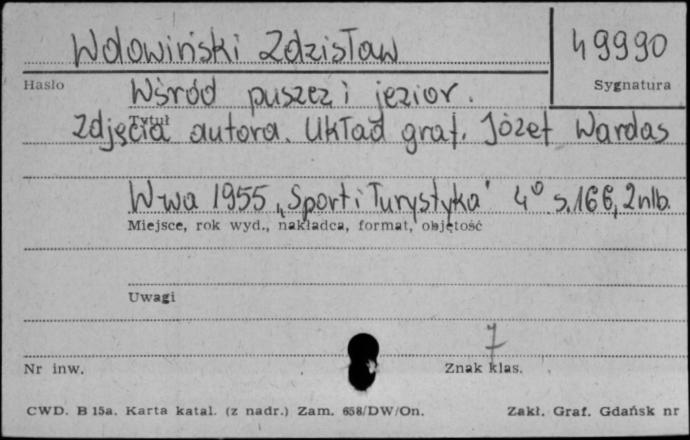 Wdowiński Zdzisław
49990
Hasło
Sygnatura
Wśród puszcz i jezior.
Tytuł
Zdjęcia autora. Układ graf. Józef Wardas
W-wa 1955 „Sport i Turystyka" 4° s.166, 2 nlb.
Miejsce, rok wyd., nakładca, format, objętość
Uwagi
7
Nr inw.
Znak klas.
CWD. B 15a. Karta katal. (z nadr.) Zam. 658/DW/On.
Zakł. Graf. Gdańsk nr